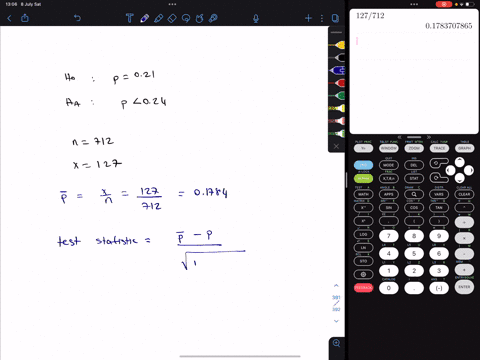 13:06 8 July Sat
H0 : p = 0.21
HA : p < 0.24
n = 712
x = 127
p̅ = x/n = 127/712 = 0.1784
test statistic = p̅ - p
√
127/712
0.1783707865
WINDOW
ZOOM
TRACE
GRAPH
MODE
DEL
X,T,θ,n
STAT
MATH
APPS
VARS
CLEAR
SIN
COS
TAN
^
,
(
)
÷
LOG
7
8
9
LN
4
5
6
STO
1
2
3
0
.
(-)
ENTER